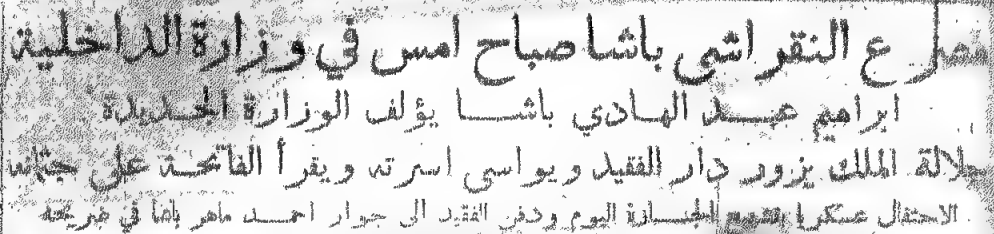 مصرع النقراشى باشا صباح امس في وزارة الداخلية
ابراهيم عبد الهادي باشا يؤلف الوزارة الجديدة
جلالة الملك يزور دار الفقيد ويواسي اسرته ويقرأ الفاتحة على جثمانه
الاحتفال عسكريا بتشييع الجنازة اليوم ودفن الفقيد الى جوار احمد ماهر باشا في ضريحه